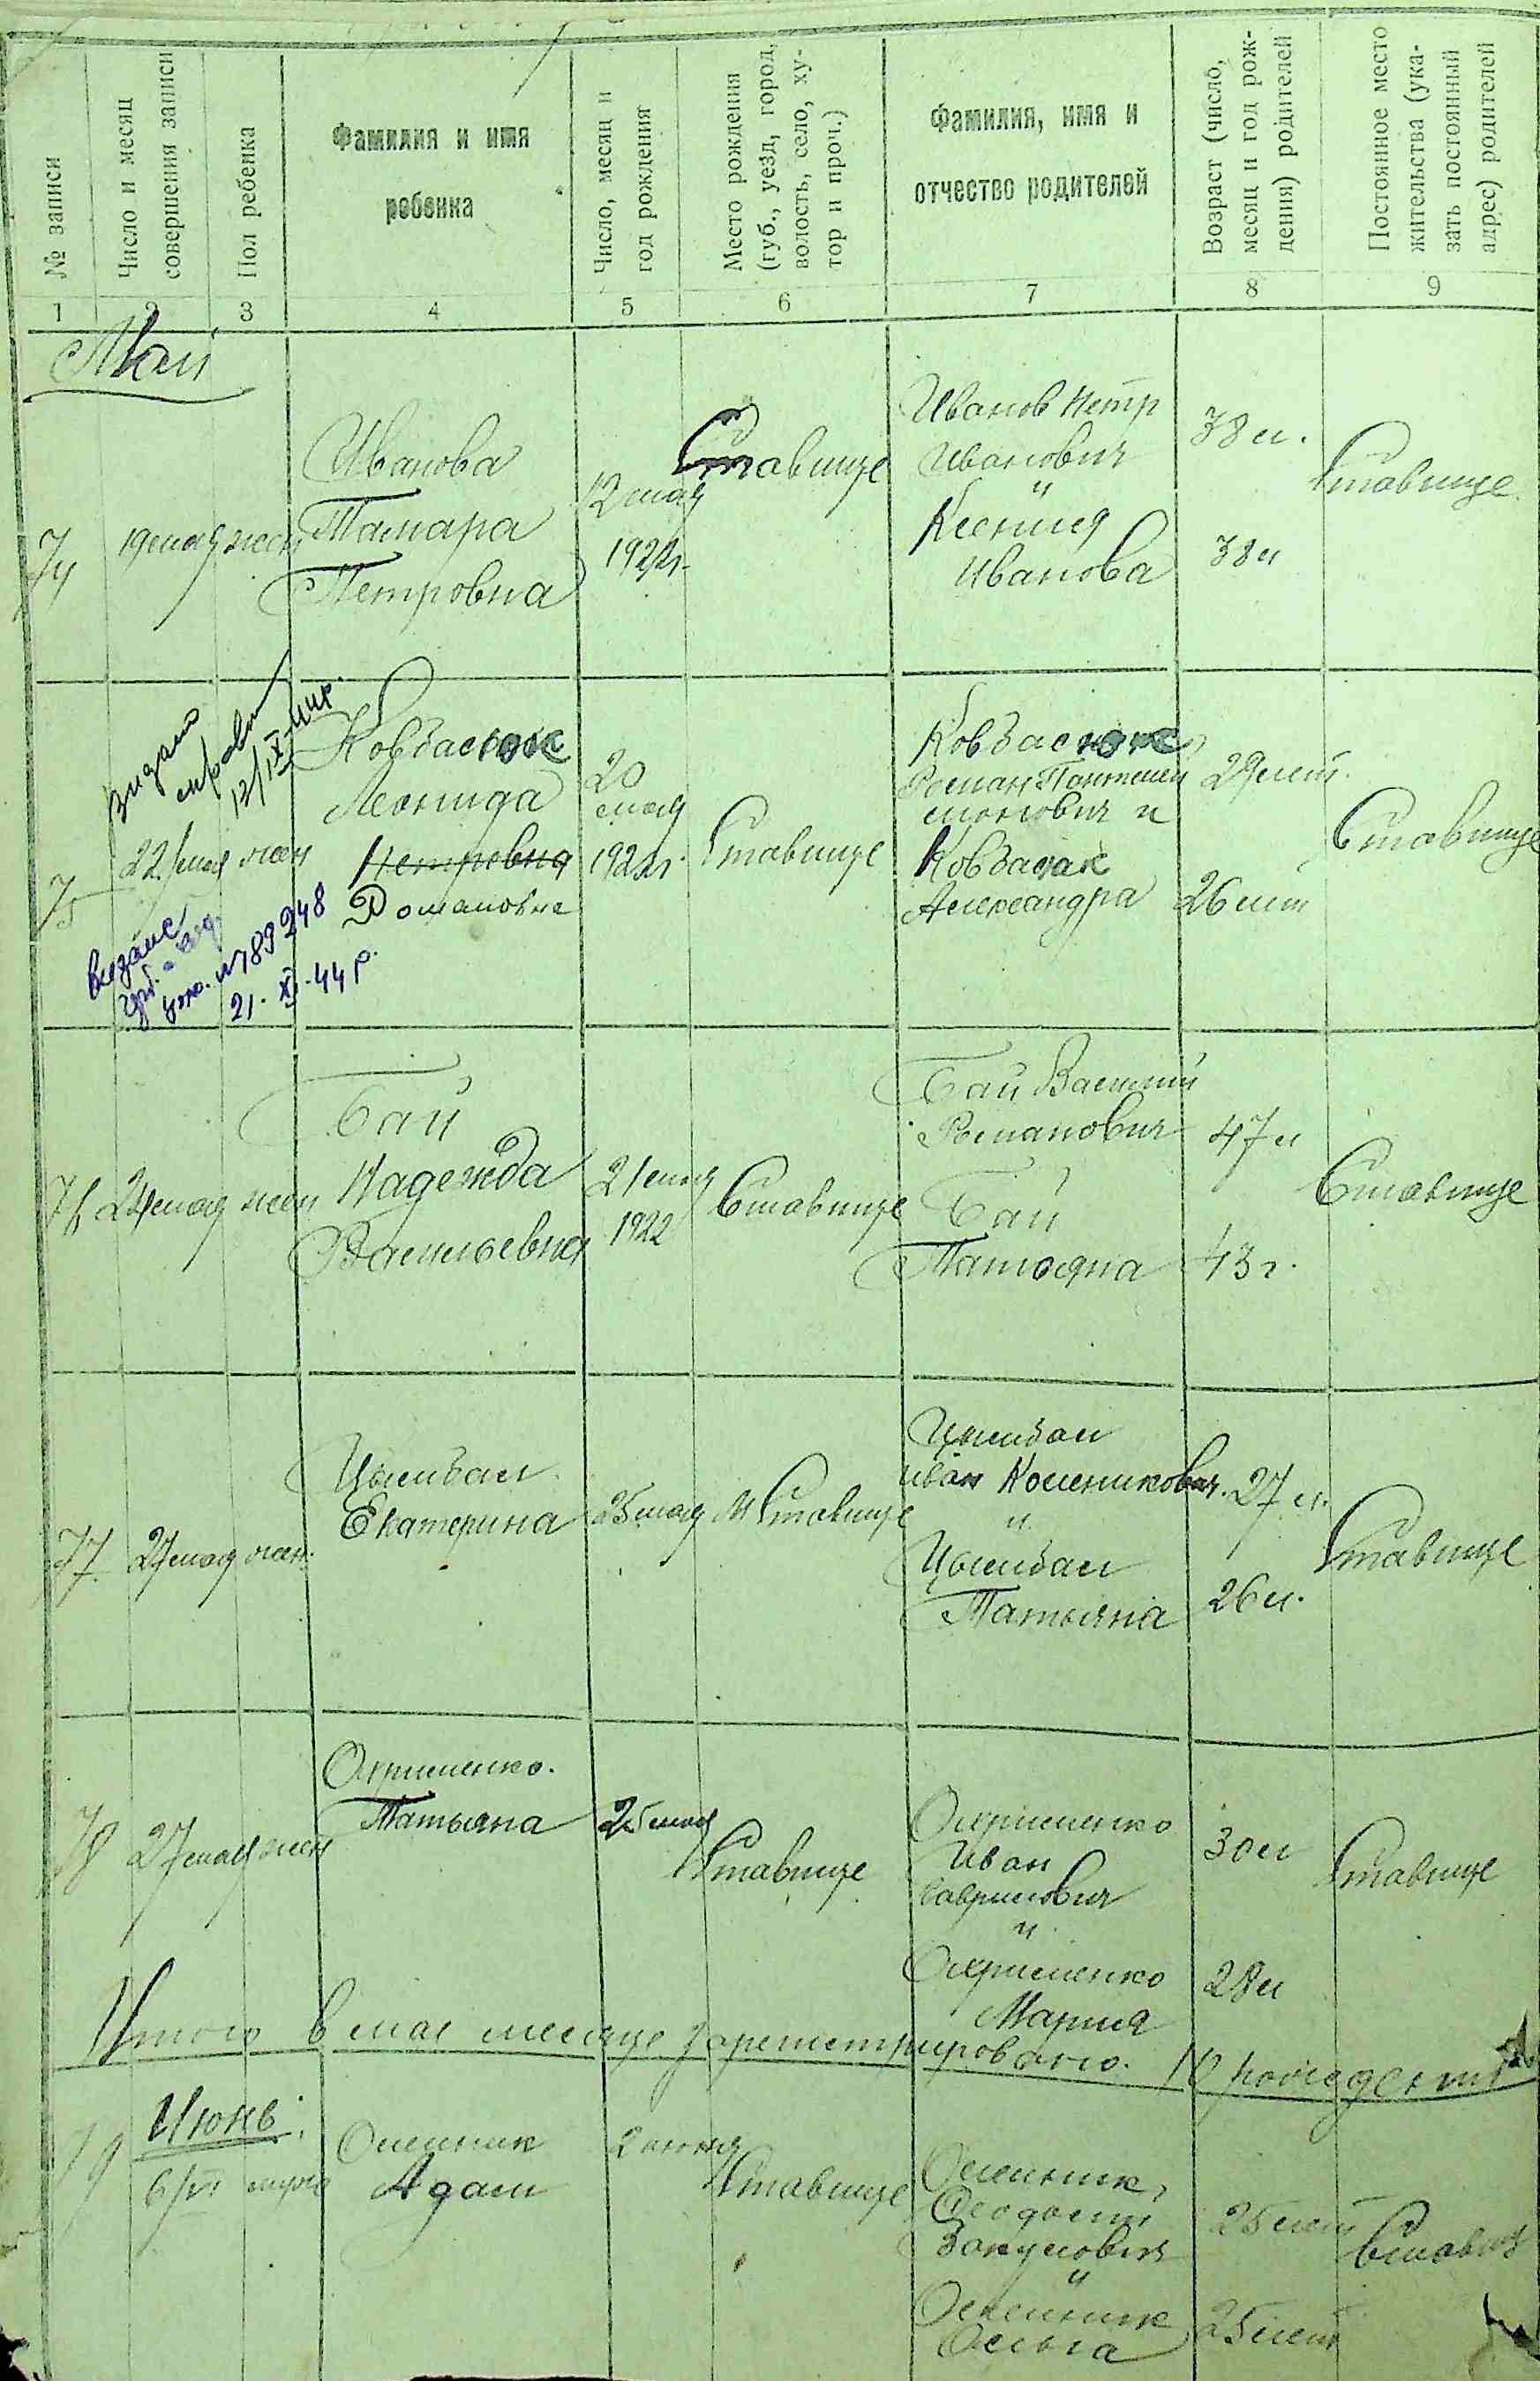 № записи
Число и месяц
совершения записи
Пол ребенка
Фамилия и имя
ребенка
Число, месяц и
год рождения
Место рождения
(губ., уезд, город,
волость, село, ху-
тор и проч.)
Фамилия, имя и
отчество родителей
Возраст (число,
месяц и год рож-
дения) родителей
Постоянное место
жительства (ука-
зать постоянный
адрес) родителей
1 2 3 4 5 6 7 8 9
Май
74
19 мая
жен
Иванова
Тамара
Петровна
12 мая
1922 г.
Ставище
Иванов Петр
Иванович
и
Ксения
Иванова
38 л.
38 л
Ставище
75
22/мая
жен
12/IX-44р.
№ 189248
21. XI. 44 р.
Ковбасюк
Леонида
Петровна
Романовна
20
мая
1922 г.
Ставище
Ковбасюк
Роман Пантелей
монович и
Ковбасюк
Александра
29 лет.
26 лет
Ставище
76
24 мая
жен
Бай
Надежда
Васильевна
21 мая
1922
Ставище
Бай Василий
Романович
Бай
Татьяна
47 л
43 г.
Ставище
77.
27 мая
жен.
Цымбал
Екатерина
25 мая
М Ставище
Цымбал
Иван
и
Цымбал
Татьяна
27 л.
26 л.
Ставище
78
27 мая
жен
Охрименко.
Татьяна
25 мая
Ставище
Охрименко
Иван
Гаврилович
и
Охрименко
Мария
30 л
28 л
Ставище
Итого в мае месяце зарегистрировано.
Июнь.
79
6/VI
Олейник
Адам
2 июня
Ставище
Олейник
Феодосий
и
Олейник
Ольга
25 лет
25 лет